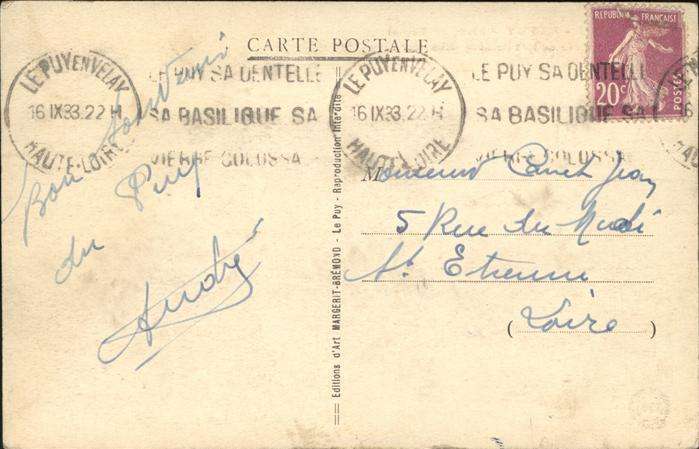 CARTE POSTALE
REPUBLIQUE FRANÇAISE
20c
POSTES
LE PUY EN VELAY
16 IX 33. 22 H
HAUTE-LOIRE
LE PUY SA DENTELLE
SA BASILIQUE SA
VIERGE COLOSSA
LE PUY EN VELAY
16 IX 33. 22 H
HAUTE-LOIRE
LE PUY SA DENTELLE
SA BASILIQUE SA
VIERGE COLOSSA
Bon souvenir
du Puy
André
Editions d'Art MARGERIT-BRÉMOND - Le Puy - Reproduction Interdite
Monsieur Jean
5 Rue du Midi
St Etienne
(Loire)